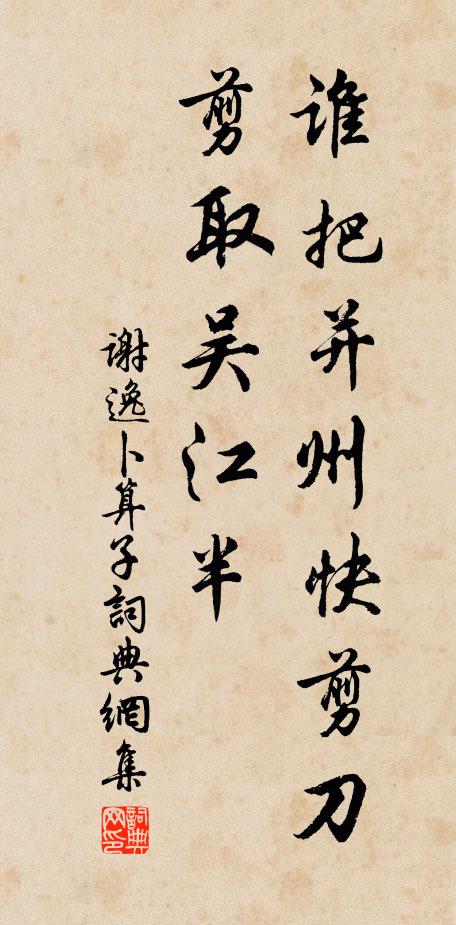 谁把并州快剪刀
剪取吴江半
謝逸卜算子詞典網集
詞典网印